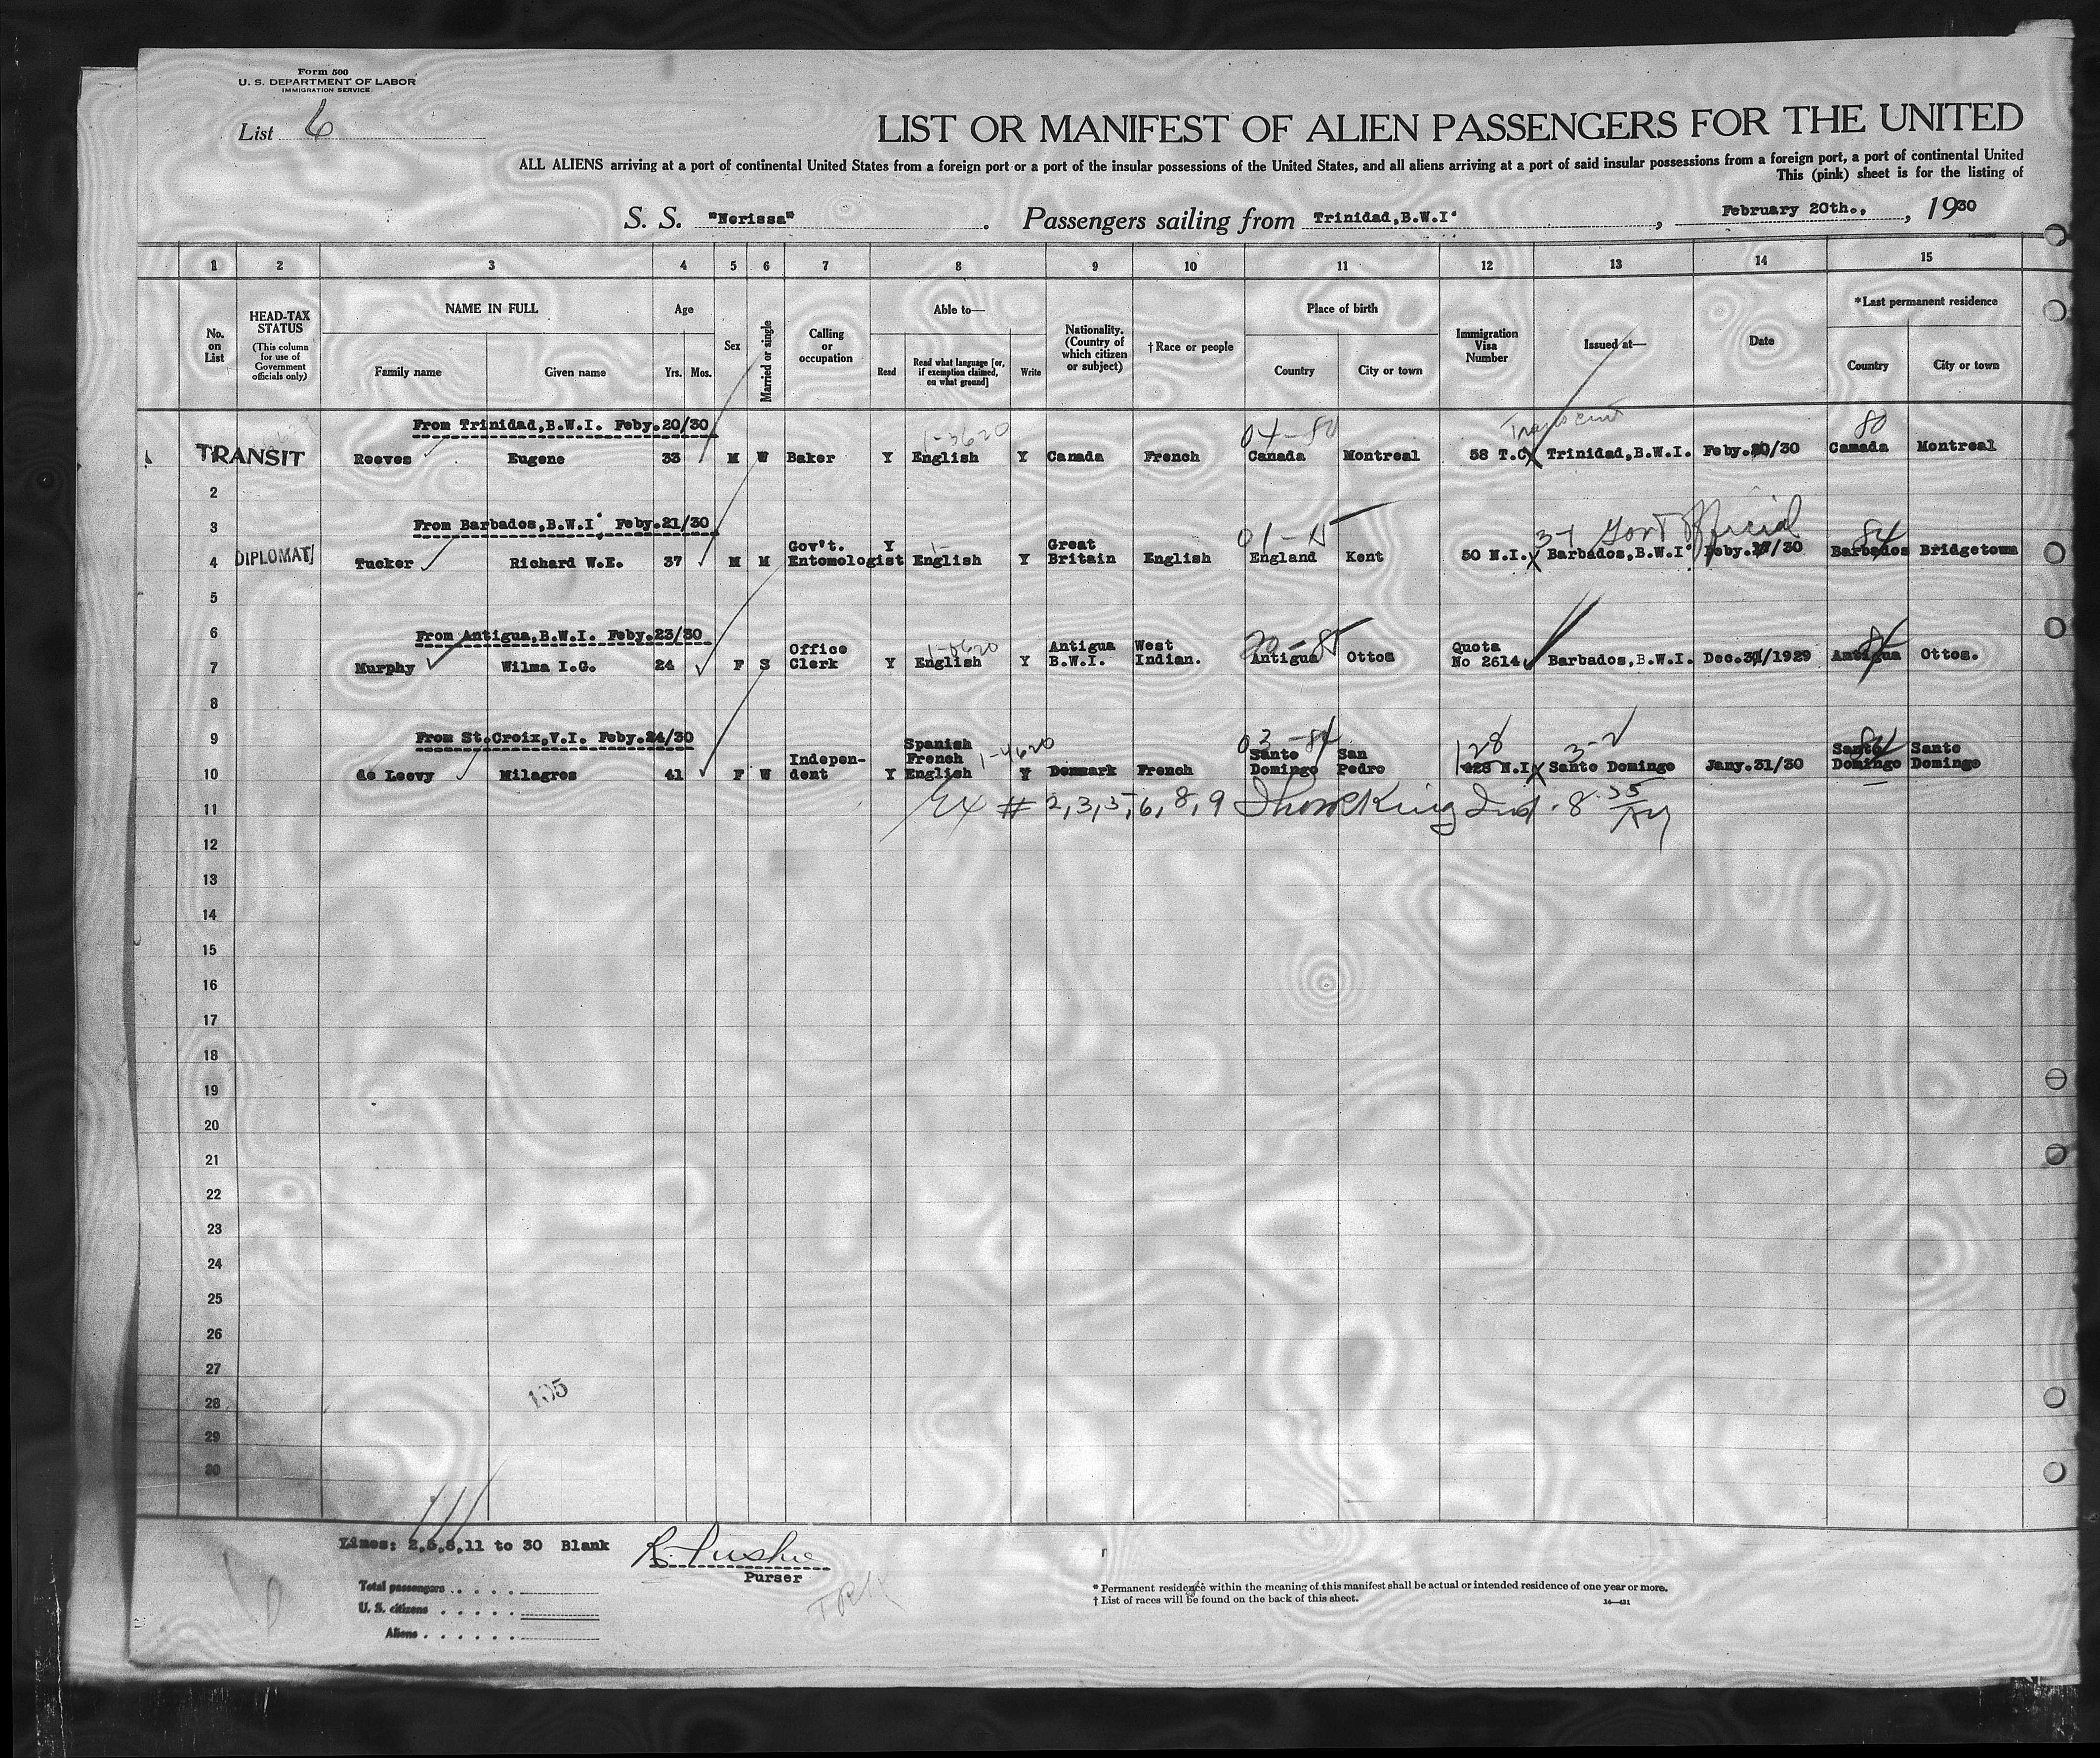 Form 500
U. S. DEPARTMENT OF LABOR
IMMIGRATION SERVICE
List 6
LIST OR MANIFEST OF ALIEN PASSENGERS FOR THE UNITED
ALL ALIENS arriving at a port of continental United States from a foreign port or a port of the insular possessions of the United States, and all aliens arriving at a port of said insular possessions from a foreign port, a port of continental United
This (pink) sheet is for the listing of
S. S. "Nerissa". Passengers sailing from Trinidad,B.W.I., February 20th., , 1930
1 2 3 4 5 6 7 8 9 10 11 12 13 14 15
No. on List
HEAD-TAX STATUS (This column for use of Government officials only)
NAME IN FULL
Family name Given name
Age
Yrs. Mos.
Sex
Married or single
Calling or occupation
Able to—
Read Read what language [or, if exemption claimed, on what ground] Write
Nationality. (Country of which citizen or subject)
† Race or people
Place of birth
Country City or town
Immigration Visa Number
Issued at—
Date
*Last permanent residence
Country City or town
From Trinidad,B.W.I. Feby.20/30 1-3620 04-80 Transient 80
TRANSIT Reeves Eugene 33 M W Baker Y English Y Canada French Canada Montreal 58 T.C. Trinidad,B.W.I. Feby. /30 Canada Montreal
2
3 From Barbados,B.W.I. Feby.21/30 3-1 Govt Official
4 DIPLOMAT Tucker Richard W.E. 37 M M Gov't. Entomologist Y English Y Great Britain English England Kent 50 N.I. Barbados,B.W.I. Feby. /30 84 Barbados Bridgetown
5
6 From Antigua,B.W.I. Feby.23/30
7 Murphy Wilma I.G. 24 F S Office Clerk Y English Y Antigua B.W.I. West Indian. Antigua Ottos Quota No 2614 Barbados,B.W.I. Dec. /1929 84 Antigua Ottos.
8
9 From St.Croix,V.I. Feby.24/30 1-4620 03-84 128 3-2 84
10 de Leevy Milagros 41 F W Independent Y Spanish French English Y Denmark French Santo Domingo San Pedro N.I. Santo Domingo Jany.31/30 Santo Domingo Santo Domingo
11 Ex # 2,3,5,6,8,9
12
13
14
15
16
17
18
19
20
21
22
23
24
25
26
27
105
28
29
30
Lines; 2,5,8,11 to 30 Blank
Purser
Total passengers . . . . .
U. S. citizens . . . . .
Aliens . . . . . .
* Permanent residence within the meaning of this manifest shall be actual or intended residence of one year or more.
† List of races will be found on the back of this sheet.